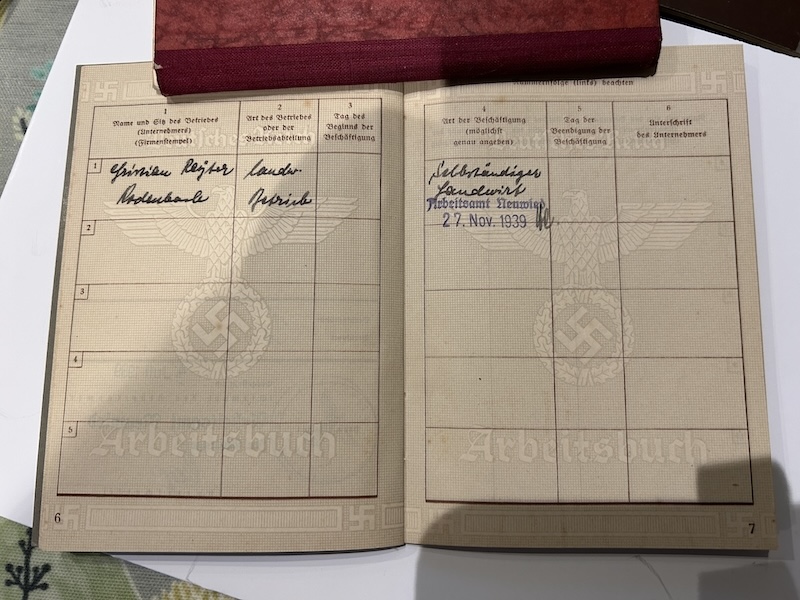 Nummernfolge (links) beachten
1
Name und Sitz des Betriebes
(Unternehmers)
(Firmenstempel)
2
Art des Betriebes
oder der
Betriebsabteilung
3
Tag des
Beginns der
Beschäftigung
4
Art der Beschäftigung
(möglichst
genau angeben)
5
Tag der
Beendigung der
Beschäftigung
6
Unterschrift
des Unternehmers
1
Christian
Rodenbach
landw.
Betrieb
Selbständiger
Landwirt
Arbeitsamt Neuwied
27. Nov. 1939
2
3
4
5
Arbeitsbuch
Arbeitsbuch
6
7